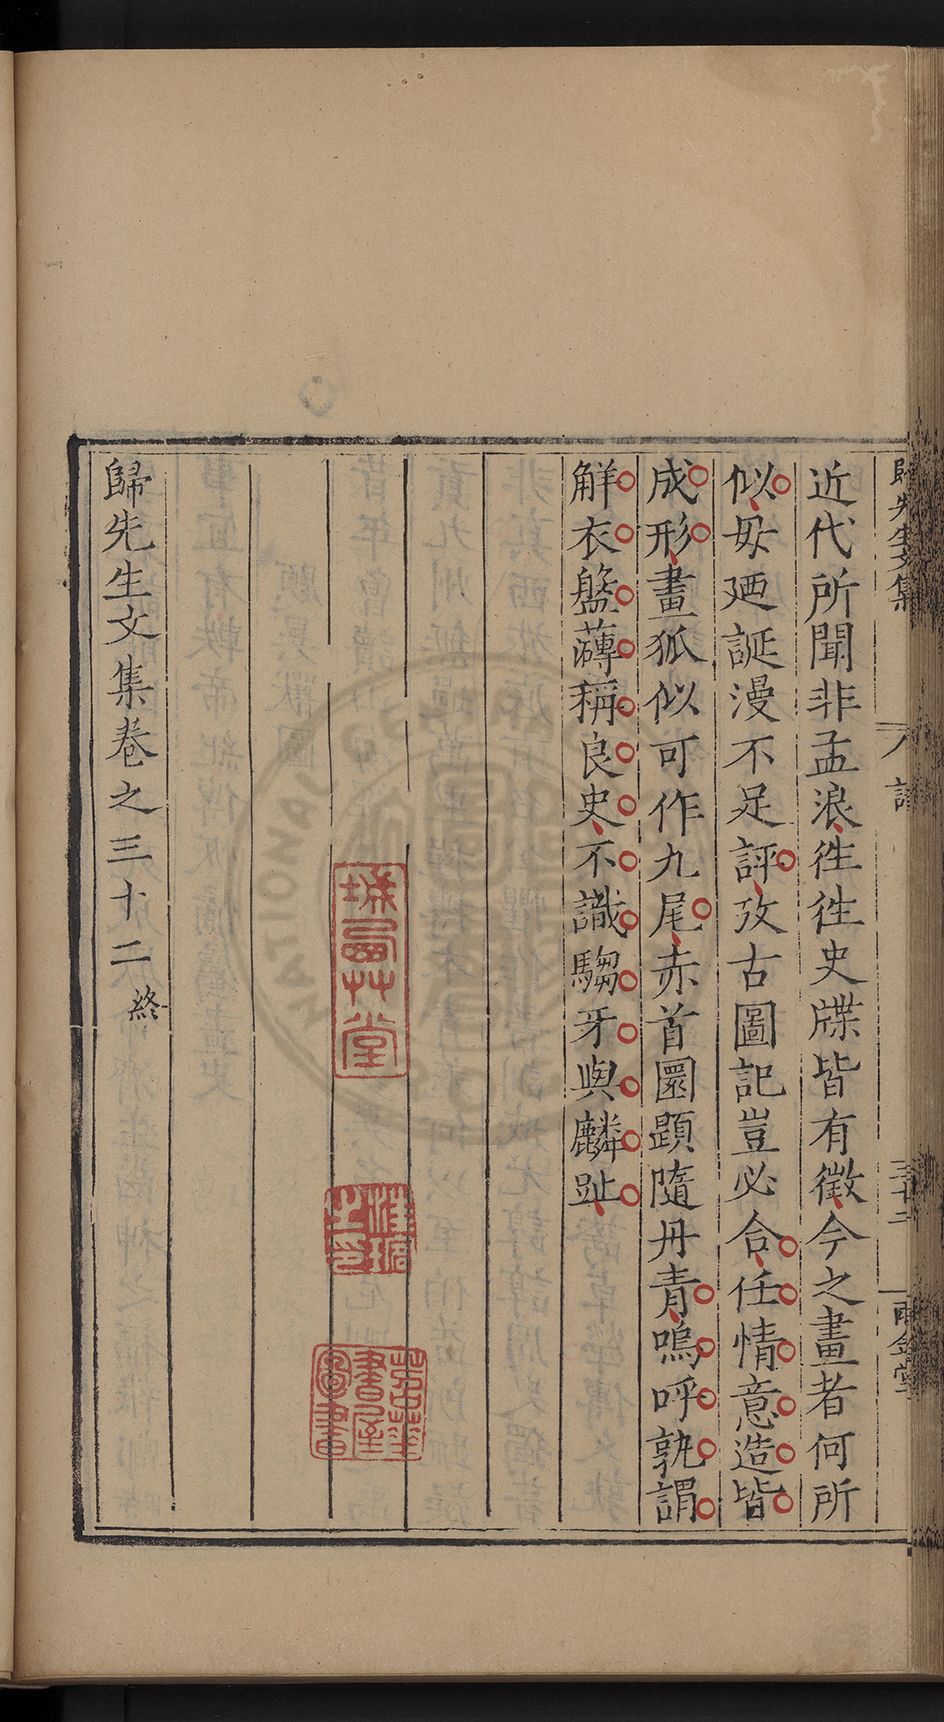 歸先生文集
八 詩
三十二
雨金堂
近代所聞非孟浪徃徃史牒皆有徵今之畫者何所
似毋廼誕漫不足評攷古圖記豈必合任情意造皆
成形畫狐似可作九尾赤首圜題隨丹青嗚呼孰謂
解衣盤薄稱良史不識騶牙與麟趾
歸先生文集卷之三十二 終